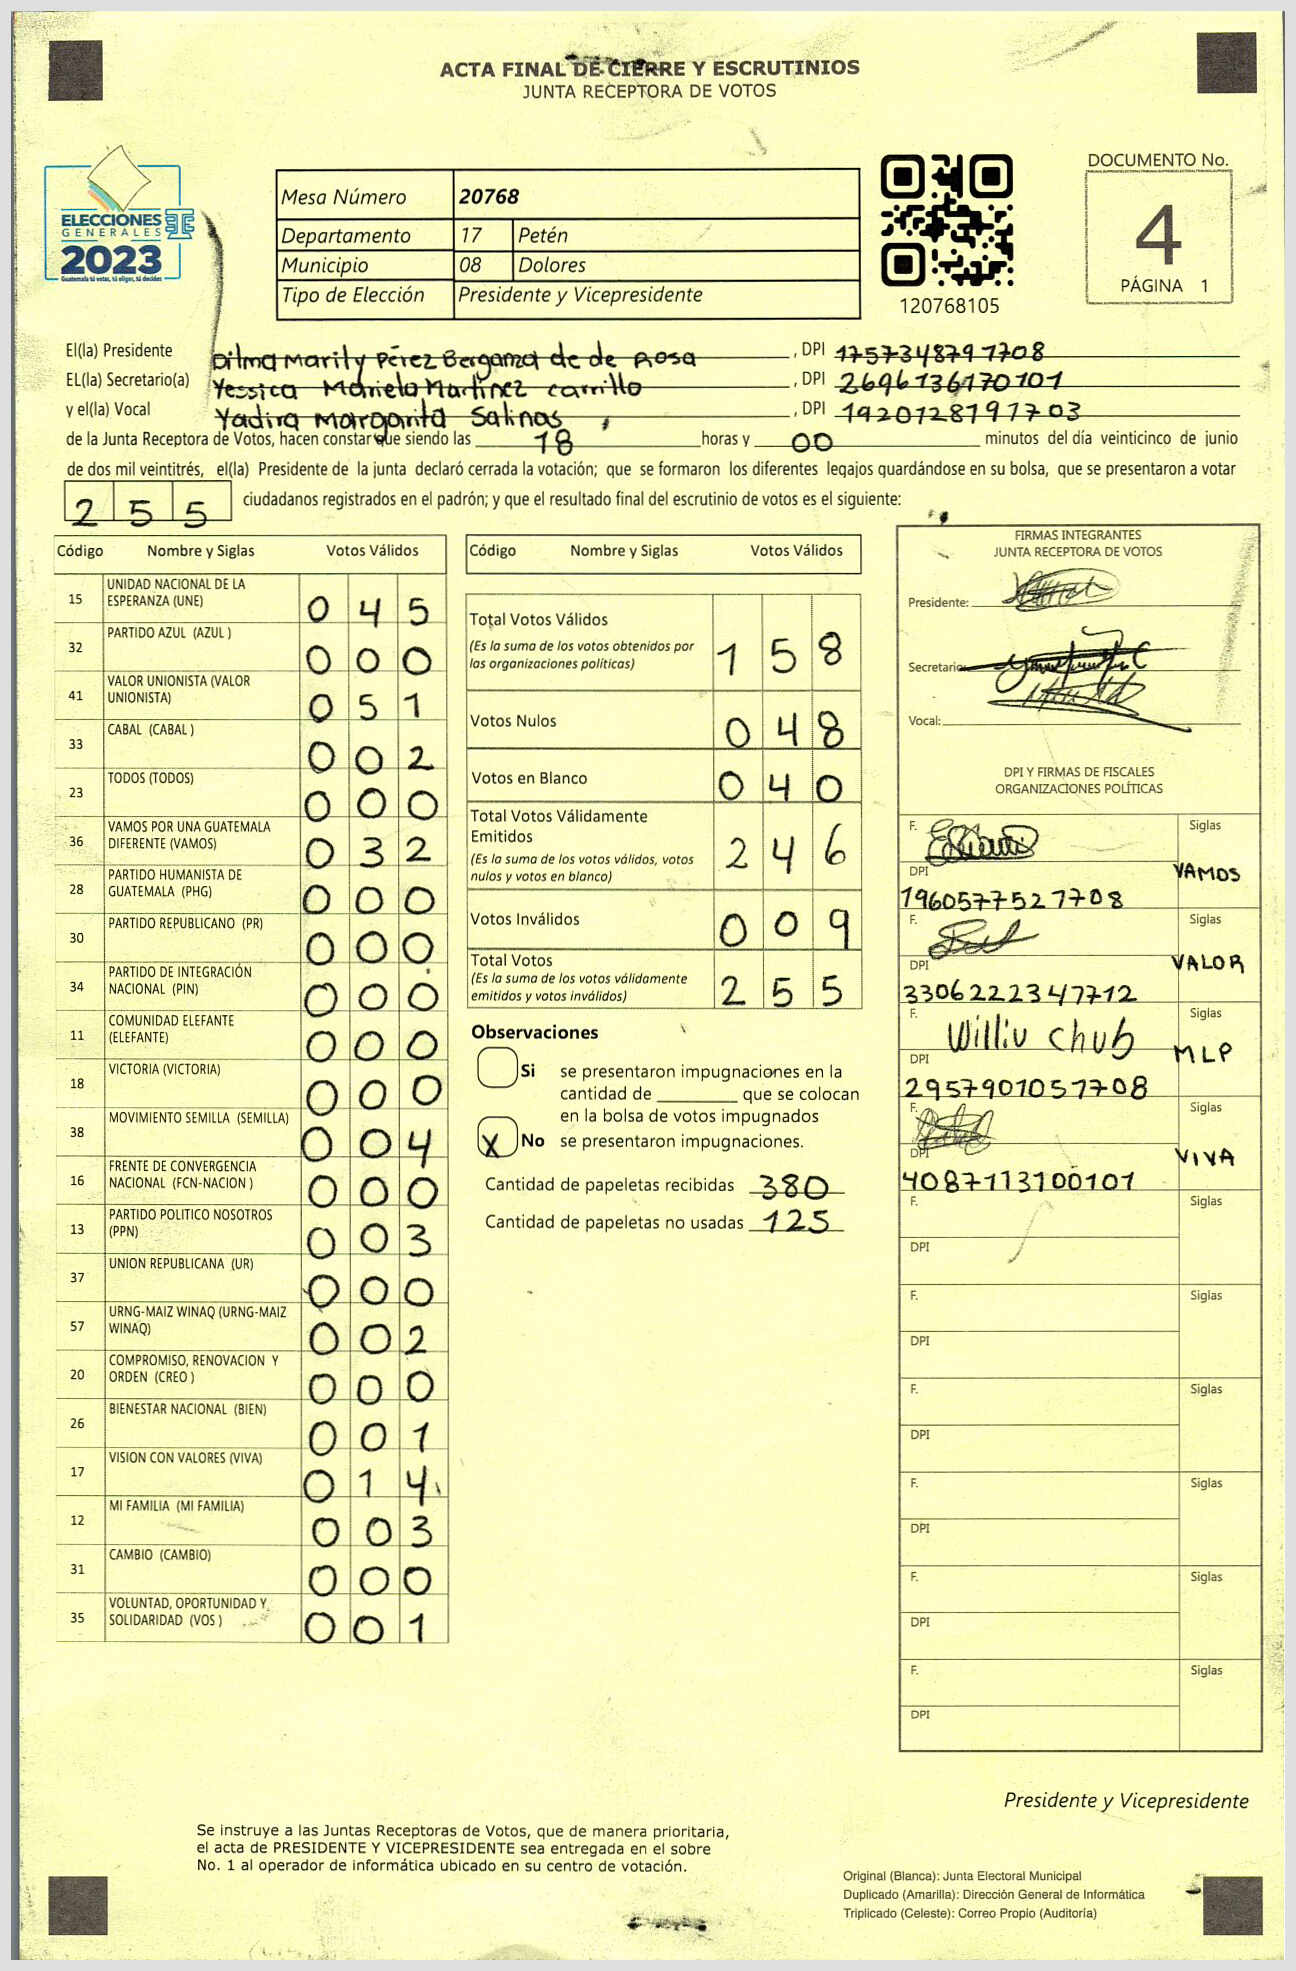 ACTA FINAL DE CIERRE Y ESCRUTINIOS
JUNTA RECEPTORA DE VOTOS
ELECCIONES
GENERALES
2023
Guatemala tú votas, tú eliges, tú decides
Mesa Número 20768
Departamento 17 Petén
Municipio 08 Dolores
Tipo de Elección Presidente y Vicepresidente
120768105
DOCUMENTO No.
4
PÁGINA 1
El(la) Presidente Dilma Marily Pérez Berganza de de Rosa , DPI 1757348791708
EL(la) Secretario(a) Yessica Mariela Martínez Carrillo , DPI 2696136170101
y el(la) Vocal Yadira Margarita Salinas , DPI 1920128191703
de la Junta Receptora de Votos, hacen constar que siendo las 18 horas y 00 minutos del día veinticinco de junio
de dos mil veintitrés, el(la) Presidente de la junta declaró cerrada la votación; que se formaron los diferentes legajos guardándose en su bolsa, que se presentaron a votar
255 ciudadanos registrados en el padrón; y que el resultado final del escrutinio de votos es el siguiente:
Código Nombre y Siglas Votos Válidos
15 UNIDAD NACIONAL DE LA ESPERANZA (UNE) 045
32 PARTIDO AZUL (AZUL ) 000
41 VALOR UNIONISTA (VALOR UNIONISTA) 051
33 CABAL (CABAL ) 002
23 TODOS (TODOS) 000
36 VAMOS POR UNA GUATEMALA DIFERENTE (VAMOS) 032
28 PARTIDO HUMANISTA DE GUATEMALA (PHG) 000
30 PARTIDO REPUBLICANO (PR) 000
34 PARTIDO DE INTEGRACIÓN NACIONAL (PIN) 000
11 COMUNIDAD ELEFANTE (ELEFANTE) 000
18 VICTORIA (VICTORIA) 000
38 MOVIMIENTO SEMILLA (SEMILLA) 004
16 FRENTE DE CONVERGENCIA NACIONAL (FCN-NACION ) 000
13 PARTIDO POLITICO NOSOTROS (PPN) 003
37 UNION REPUBLICANA (UR) 000
57 URNG-MAIZ WINAQ (URNG-MAIZ WINAQ) 002
20 COMPROMISO, RENOVACION Y ORDEN (CREO ) 000
26 BIENESTAR NACIONAL (BIEN) 001
17 VISION CON VALORES (VIVA) 014
12 MI FAMILIA (MI FAMILIA) 003
31 CAMBIO (CAMBIO) 000
35 VOLUNTAD, OPORTUNIDAD Y SOLIDARIDAD (VOS ) 001
Código Nombre y Siglas Votos Válidos
Total Votos Válidos 158
(Es la suma de los votos obtenidos por
las organizaciones políticas)
Votos Nulos 048
Votos en Blanco 040
Total Votos Válidamente
Emitidos 246
(Es la suma de los votos válidos, votos
nulos y votos en blanco)
Votos Inválidos 009
Total Votos 255
(Es la suma de los votos válidamente
emitidos y votos inválidos)
Observaciones
Si se presentaron impugnaciones en la
cantidad de ________ que se colocan
en la bolsa de votos impugnados
X No se presentaron impugnaciones.
Cantidad de papeletas recibidas 380
Cantidad de papeletas no usadas 125
FIRMAS INTEGRANTES
JUNTA RECEPTORA DE VOTOS
Presidente:
Secretario:
Vocal:
DPI Y FIRMAS DE FISCALES
ORGANIZACIONES POLÍTICAS
F. Siglas
DPI VAMOS
1960577527708
F. Siglas
DPI VALOR
3306222347712
F. Williv Chub Siglas
DPI MLP
2957901051708
F. Siglas
DPI VIVA
4087113100101
F. Siglas
DPI
F. Siglas
DPI
F. Siglas
DPI
F. Siglas
DPI
F. Siglas
DPI
F. Siglas
DPI
Presidente y Vicepresidente
Se instruye a las Juntas Receptoras de Votos, que de manera prioritaria,
el acta de PRESIDENTE Y VICEPRESIDENTE sea entregada en el sobre
No. 1 al operador de informática ubicado en su centro de votación.
Original (Blanca): Junta Electoral Municipal
Duplicado (Amarilla): Dirección General de Informática
Triplicado (Celeste): Correo Propio (Auditoría)